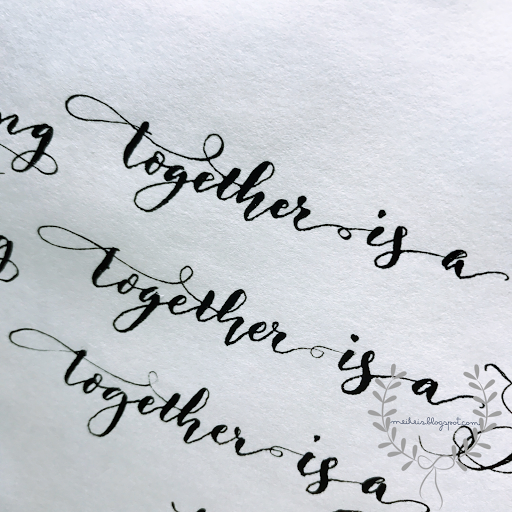 ng together is a
g together is a
together is a
meiheis.blogspot.com